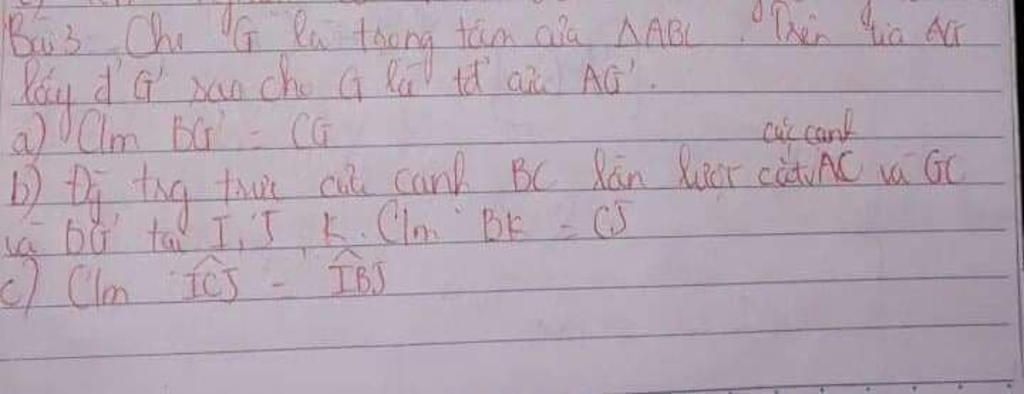 Bài 3 Cho G là trọng tâm của ΔABC. Trên tia AG
lấy đ' G' sao cho G là tđ của AG'.
a) C/m BG' = CG
các cạnh
b) Đg trug trực của cạnh BC lần lượt cắt AC và GC
và BG' tại I, J, K. C/m BK = CJ
c) C/m ICJ = IBJ